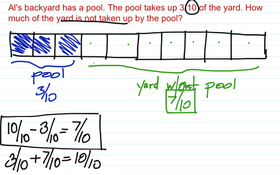 Al's backyard has a pool. The pool takes up 3/10 of the yard. How
much of the yard is not taken up by the pool?
pool
3/10
yard w/out pool
7/10
10/10 - 3/10 = 7/10
3/10 + 7/10 = 10/10